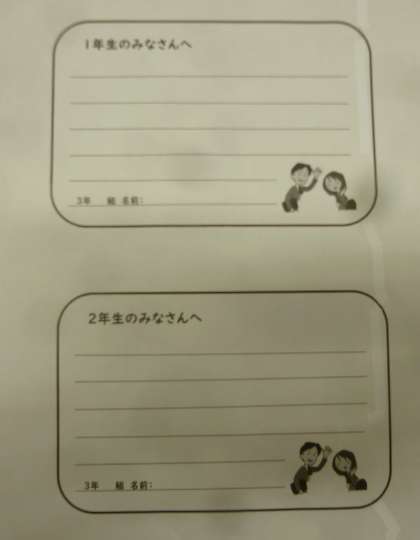 1年生のみなさんへ
3年 組 名前:
2年生のみなさんへ
3年 組 名前: